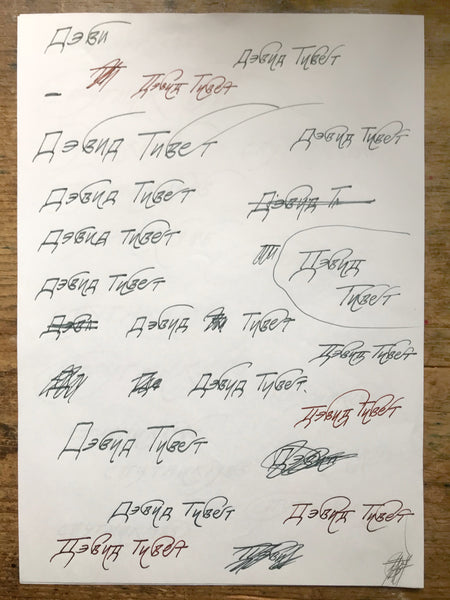 Дэви
Дэвид Тивет
Дэвид Тивет
Дэвид Тивет
Дэвид Тивет
Дэвид Тивет
Дэвид Т
Дэвид Тивет
Дэвид
Тивет
Дэвид Тивет
Дэвид Тивет
Дэвид Тивет
Дэвид Тивет
Дэвид Тивет
Дэвид Тивет
Дэвид Тивет
Дэвид Тивет
Дэвид Тивет
Дэвид Тивет